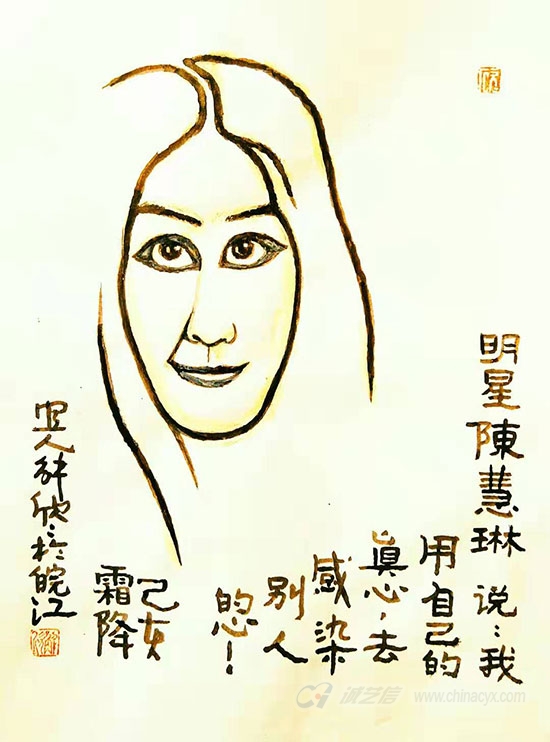 明星陳慧琳 说:我
用自己的
眞心,去
感染
别人
的心!
己亥
霜降
於皖江
诚艺信 www.chinacyx.com